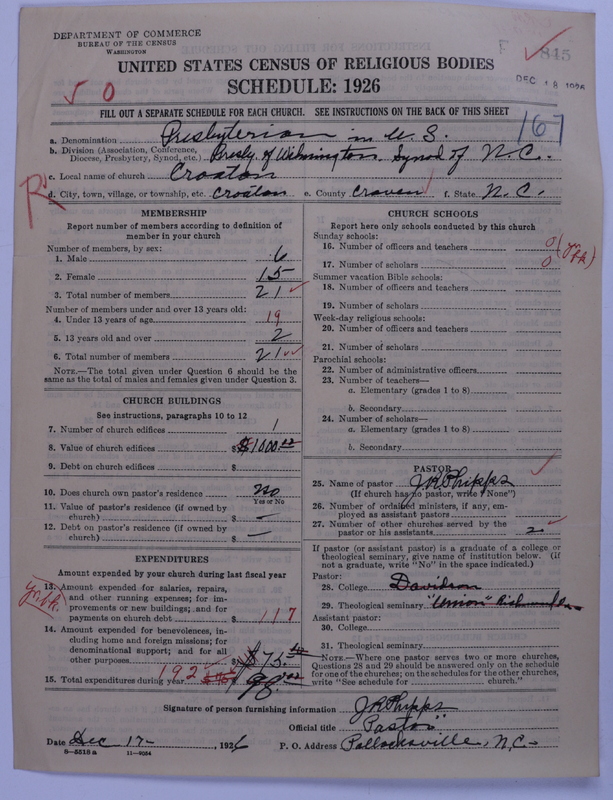 DEPARTMENT OF COMMERCE
BUREAU OF THE CENSUS
WASHINGTON
845
DEC 18 1926
UNITED STATES CENSUS OF RELIGIOUS BODIES
SCHEDULE: 1926
50
FILL OUT A SEPARATE SCHEDULE FOR EACH CHURCH. SEE INSTRUCTIONS ON THE BACK OF THIS SHEET
167
a. Denomination Presbyterian in U.S.
b. Division (Association, Conference, Diocese, Presbytery, Synod, etc.) Presby. of Wilmington, Synod of N.C.
c. Local name of church Croatan
d. City, town, village, or township, etc. Croatan e. County Craven f. State N.C.
R
MEMBERSHIP
Report number of members according to definition of
member in your church
Number of members, by sex:
1. Male 6
2. Female 15
3. Total number of members 21
Number of members under and over 13 years old:
4. Under 13 years of age 19
5. 13 years old and over 2
6. Total number of members 21
NOTE.—The total given under Question 6 should be
same as the total of males and females given under Question 3.
CHURCH BUILDINGS
See instructions, paragraphs 10 to 12
7. Number of church edifices 1
8. Value of church edifices $ $1000.00
9. Debt on church edifices $
10. Does church own pastor's residence No
Yes or No
11. Value of pastor's residence (if owned by
church) $ —
12. Debt on pastor's residence (if owned by
church) $ —
EXPENDITURES
Amount expended by your church during last fiscal year
13. Amount expended for salaries, repairs,
and other running expenses; for im-
provements or new buildings; and for
payments on church debt $ 117
14. Amount expended for benevolences, in-
cluding home and foreign missions; for
denominational support; and for all
other purposes $ $75.00
15. Total expenditures during year 192 98.00
CHURCH SCHOOLS
Report here only schools conducted by this church
Sunday schools:
16. Number of officers and teachers 0
17. Number of scholars 0
Summer vacation Bible schools:
18. Number of officers and teachers
19. Number of scholars
Week-day religious schools:
20. Number of officers and teachers
21. Number of scholars
Parochial schools:
22. Number of administrative officers
23. Number of teachers—
a. Elementary (grades 1 to 8)
b. Secondary
24. Number of scholars—
a. Elementary (grades 1 to 8)
b. Secondary
PASTOR
25. Name of pastor J R Phipps
(If church has no pastor, write "None")
26. Number of ordained ministers, if any, em-
ployed as assistant pastors
27. Number of other churches served by the
pastor or his assistants 2
If pastor (or assistant pastor) is a graduate of a college or
theological seminary, give name of institution below. (if
not a graduate, write "No" in the space indicated.)
Pastor:
28. College Davidson
29. Theological seminary "Union" Richmond Va
Assistant pastor:
30. College
31. Theological seminary
NOTE.—Where one pastor serves two or more churches,
Questions 28 and 29 should be answered only on the schedule
for one of the churches; on the schedules for the other churches,
write "See schedule for church."
Signature of person furnishing information J R Phipps
Official title "Pastor"
Date Dec 17-, 1926 P. O. Address Pollocksville, N.C.
8—5518 a 11—9034